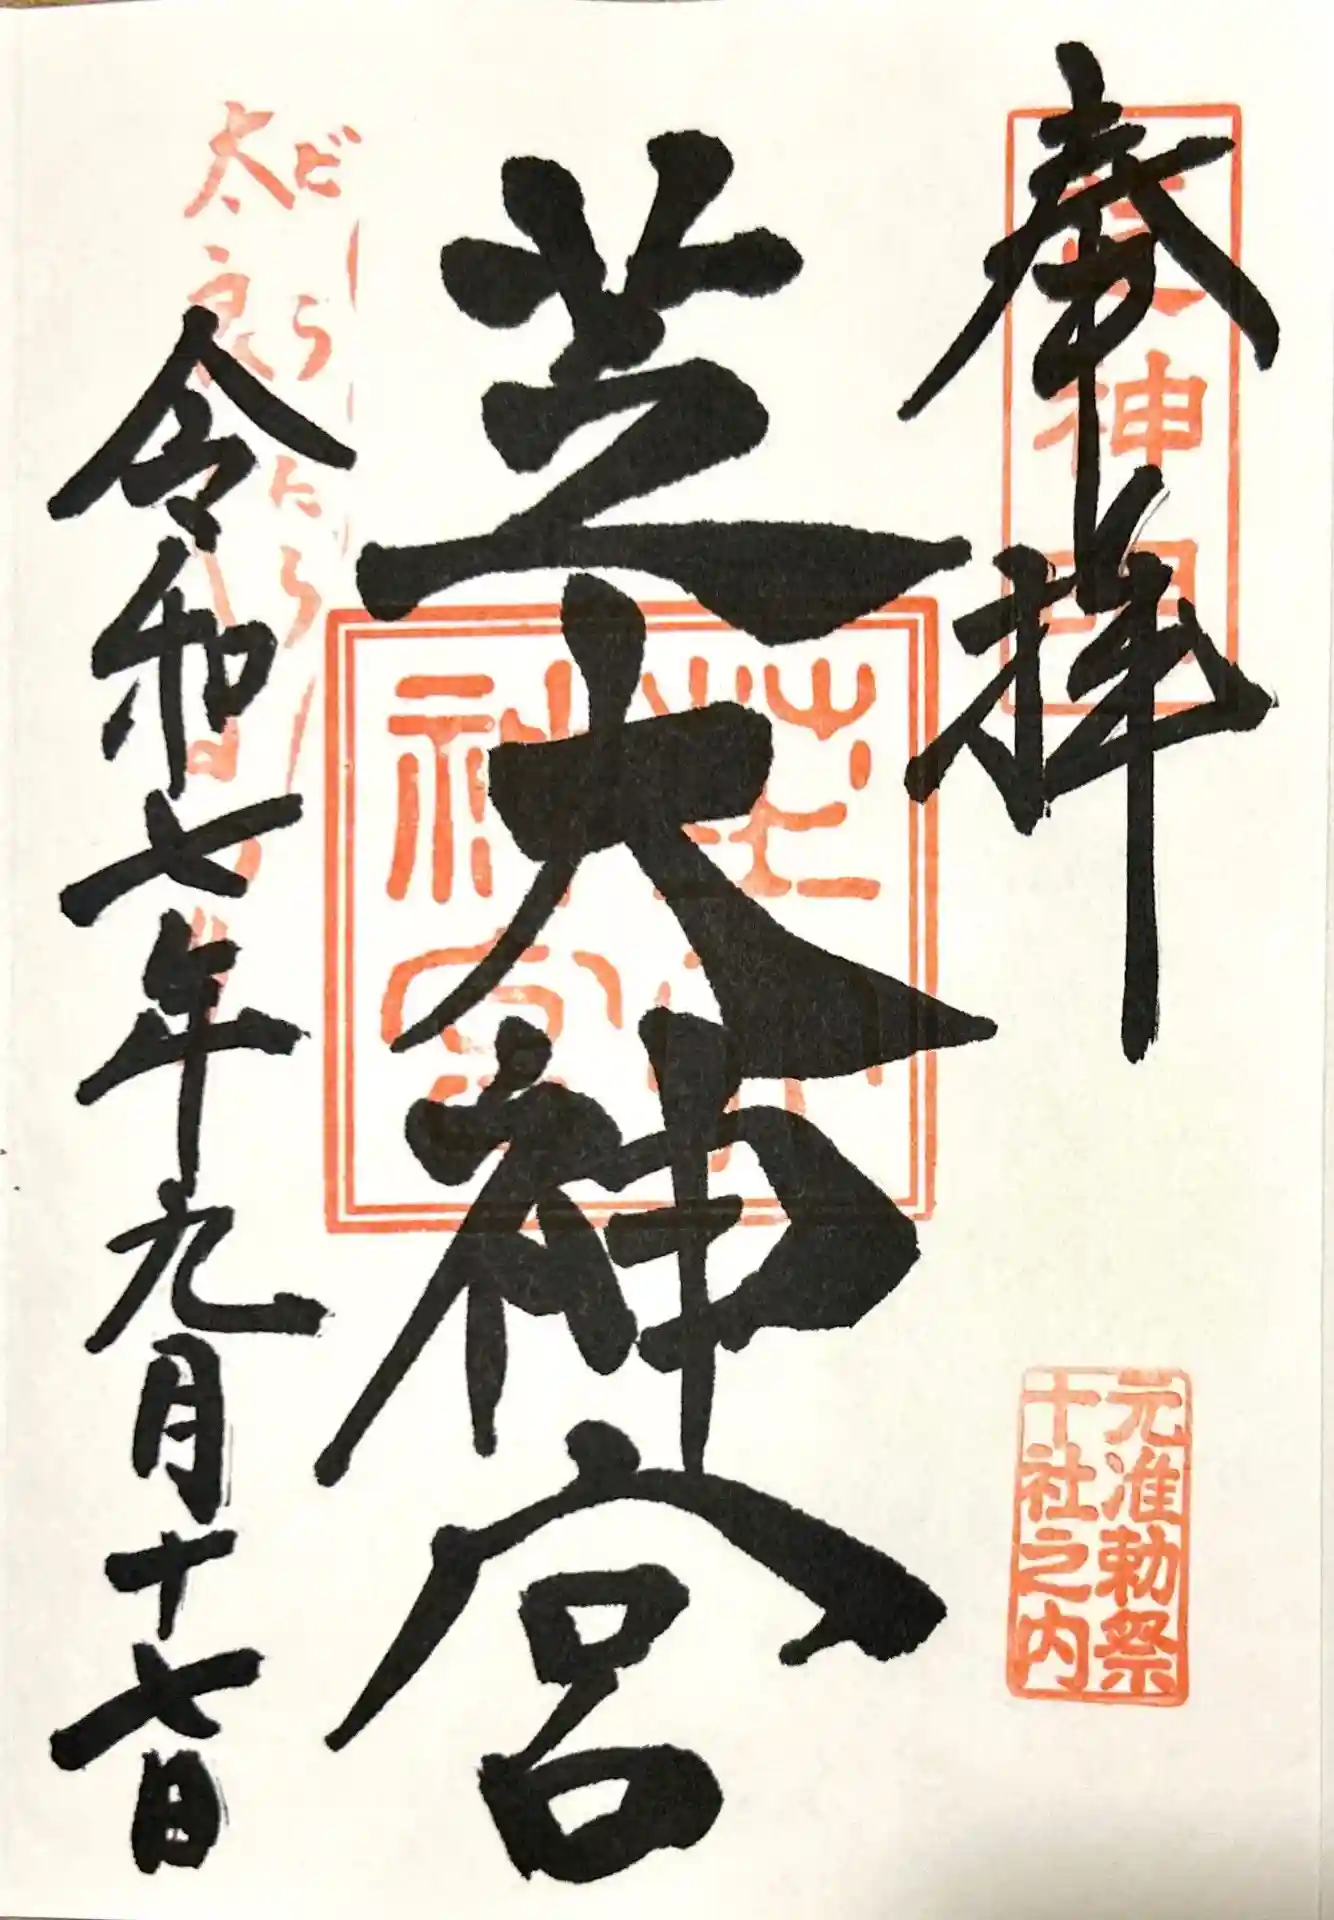 奉拝
芝神明
元准勅祭
十社之内
芝大神宮
芝大神宮
だらだら
太良
令和七年九月十七日